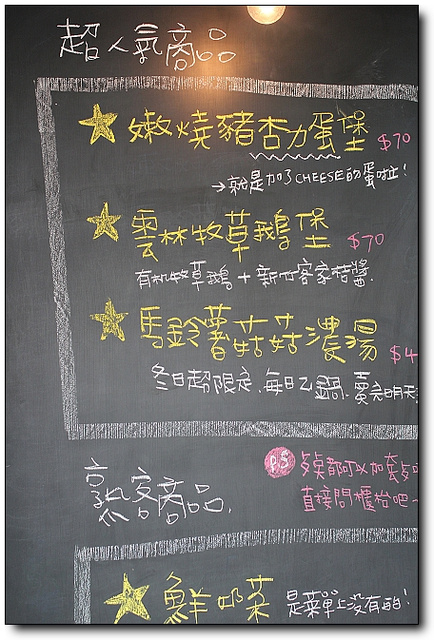 超人氣商品
嫩燒豬杏力蛋堡 $70
→就是加了CHEESE的蛋啦!
雲林牧草鵝堡 $70
有機牧草鵝+新竹客家桔醬.
馬鈴薯菇菇濃湯 $4
冬日超限定.每日乙鍋.賣完明天
P.S 每套都可以加套
直接問櫃台吧~
熟客商品.
鮮奶茶 是菜單上沒有的!